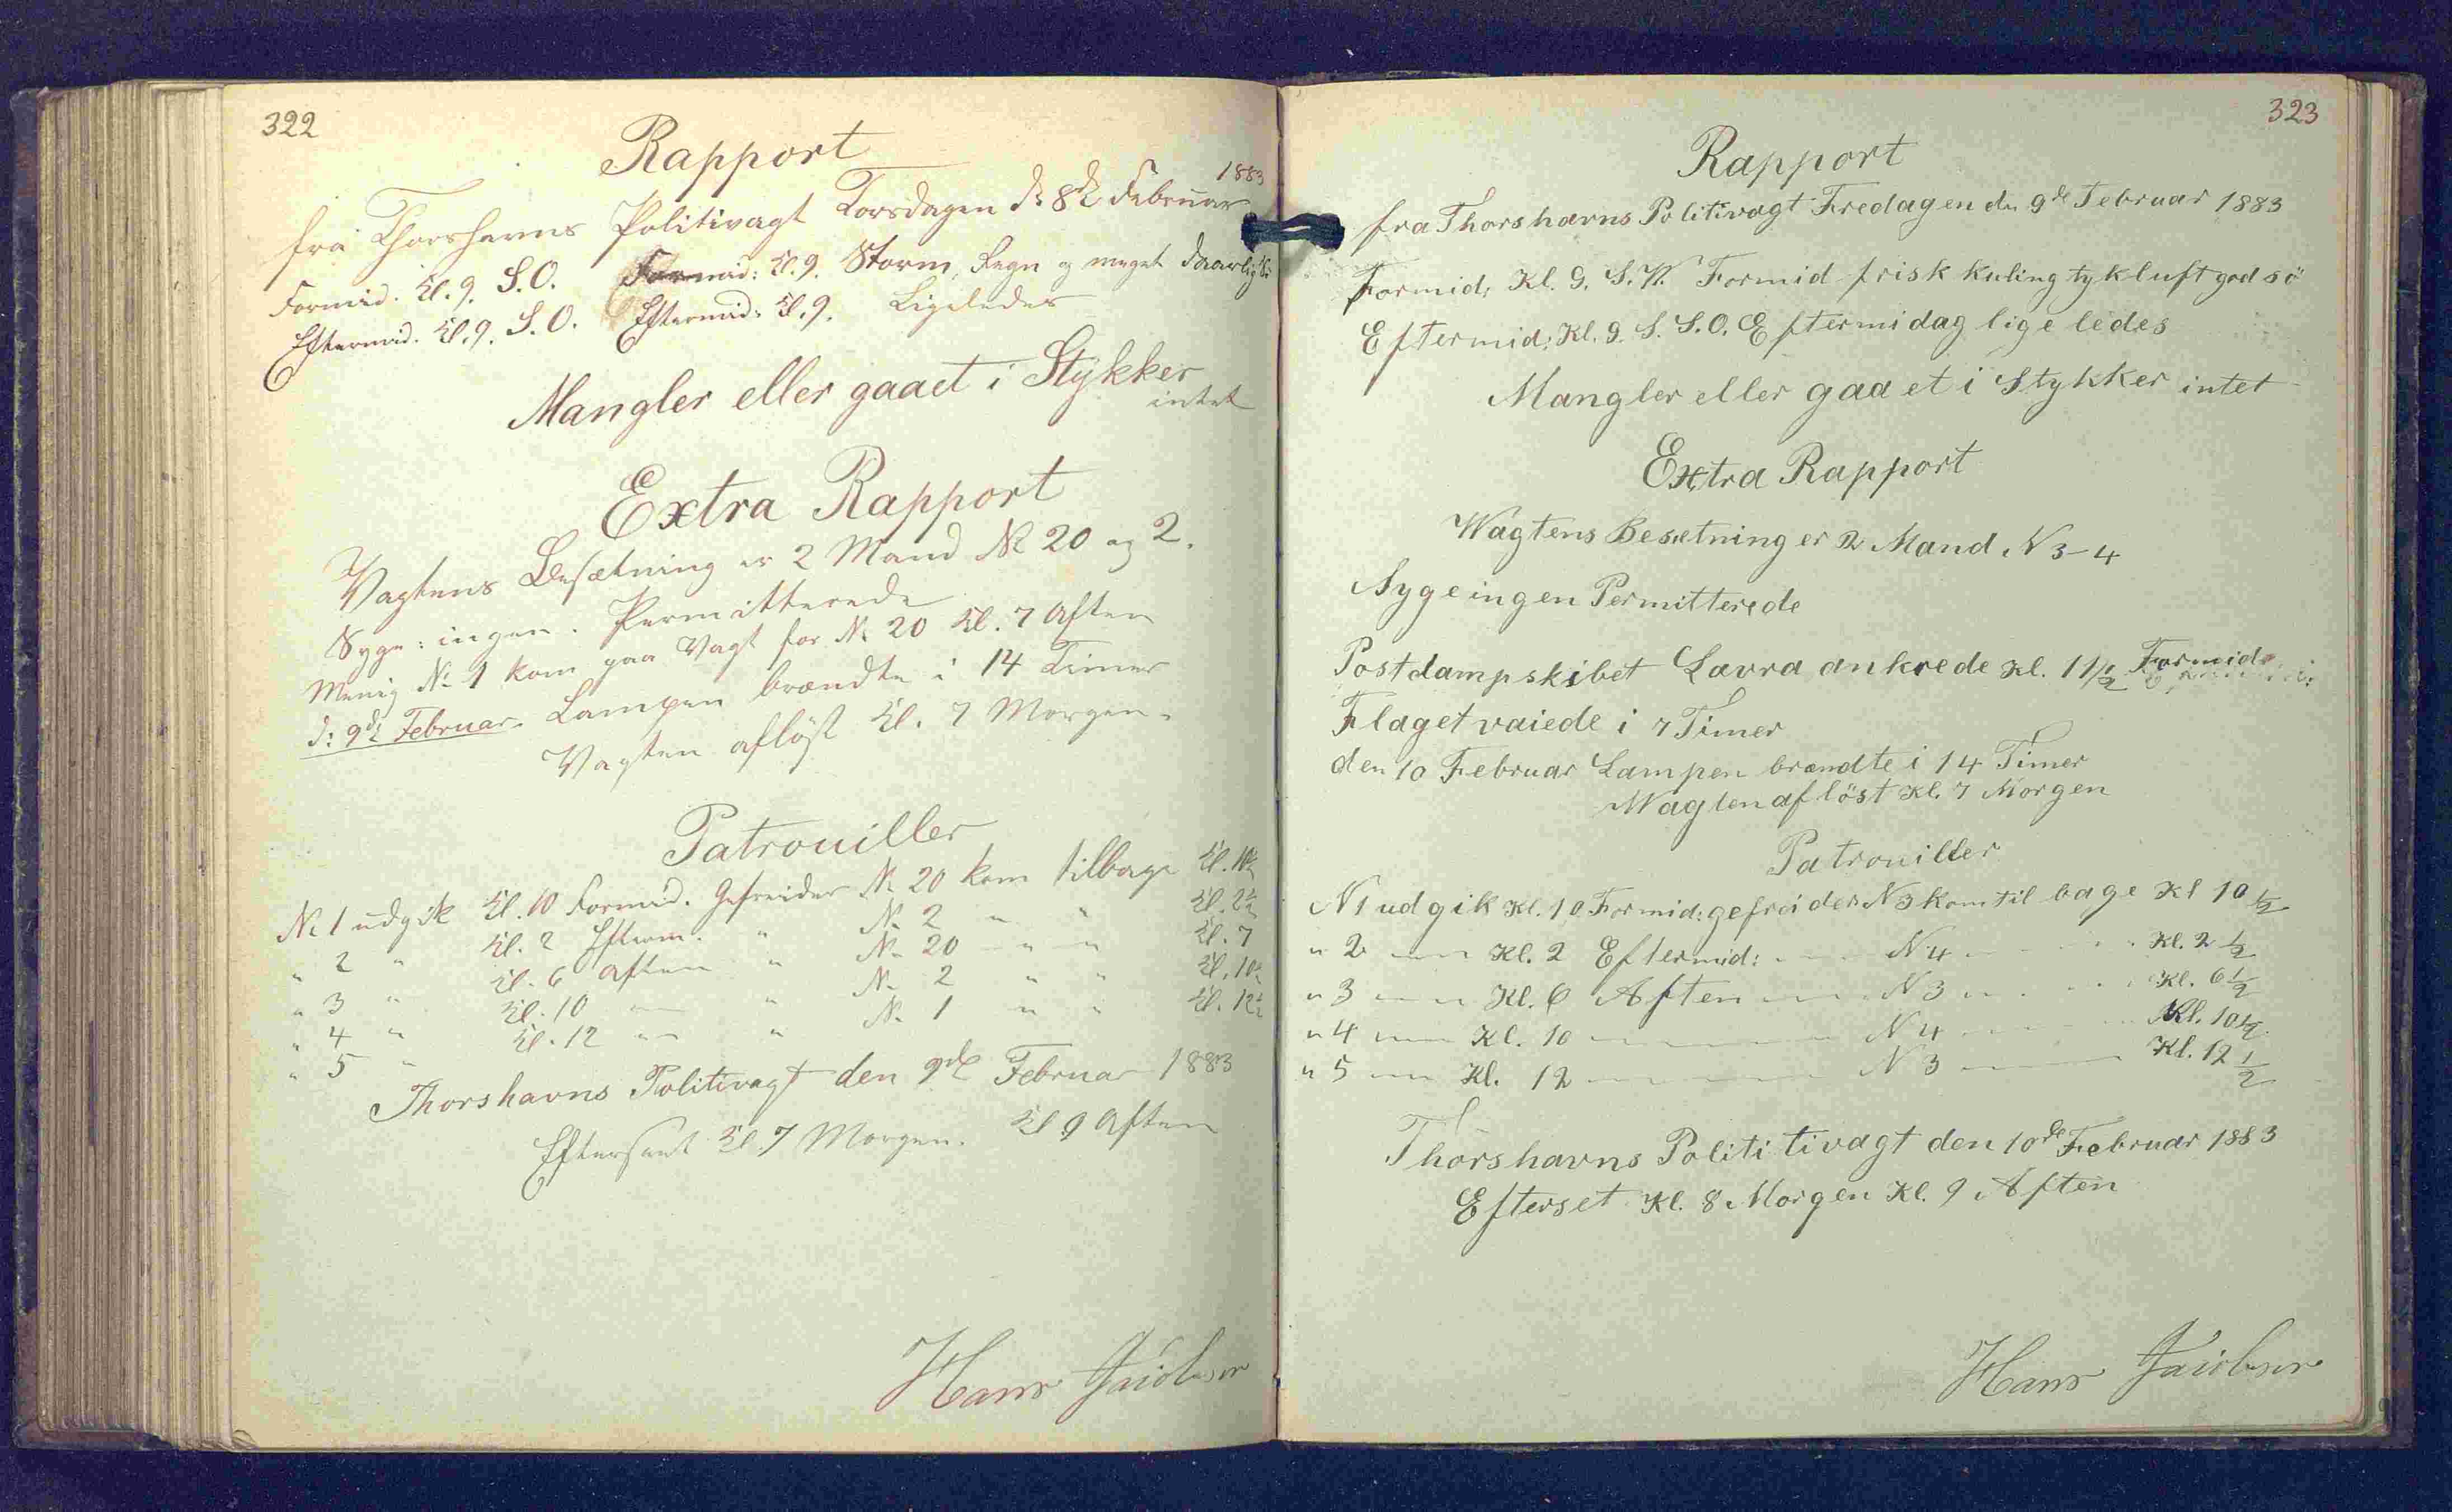 322
Rapport
1883
fra Thorshavns Politivagt Torsdagen d: 8de Februar
Formid. Kl. 9. S.O. Formid: Kl. 9. Storm, Regn og meget daarlig
Eftermid. Kl. 9. S.O. Eftermid: Kl. 9. Ligeledes
Mangler eller gaaet i Stykker
intet
Extra Rapport
Vagtens Besætning er 2 Mand No 20 og 2.
Syge: ingen. Permitterede
Menig No 1 kom paa Vagt for No 20 Kl. 7 Aften
d: 9de Februar. Lampen brændte i 14 Timer
Vagten afløst Kl. 7 Morgen.
Patrouiller
No 1 udgik Kl. 10 Formid. Gefreider No 20 kom tilbage Kl. 10½
" 2 " Kl. 2 Efterm. " No 2 " " Kl. 2½
" 3 " Kl. 6 Aften " No 20 " " Kl. 7
" 4 " Kl. 10 — " No 2 " " Kl. 10½
" 5 " Kl. 12 — " No 1 " " Kl. 12½
Thorshavns Politivagt den 9de Februar 1883
Efterseet Kl. 7 Morgen. Kl 9 Aften
Hans Jacobsen
323
Rapport
fra Thorshavns Politivagt Fredagen dn 9de Februar 1883
Formid; Kl. 9. S.V. Formid frisk kuling tyk luft god sö
Eftermid; Kl. 9. S. S.O. Eftermidag lige ledes
Mangler eller gaaet i Stykker intet
Extra Rapport
Wagtens Besætning er 2 Mand N 3-4
Syge ingen Permitterede
Postdampskibet Lavra ankrede Kl. 11½ Formid
Flaget vaiede i 7 Timer
den 10 Februar Lampen brændte i 14 Timer
Wagten aflöst Kl. 7 Morgen
Patrouiller
N 1 udgik Kl. 10 Formid: gefreider N 3 kom til bage Kl 10½
" 2 — Kl. 2 Eftermid: — N 4 — Kl. 2½
" 3 — Kl. 6 Aften — N 3 — Kl. 6½
" 4 — Kl. 10 — N 4 — Kl. 10½
" 5 — Kl. 12 — N 3 — Kl. 12½
Thorshavns Polititivagt den 10de Februar 1883
Efterset Kl. 8 Morgen Kl. 9 Aften
Hans Jacobsen